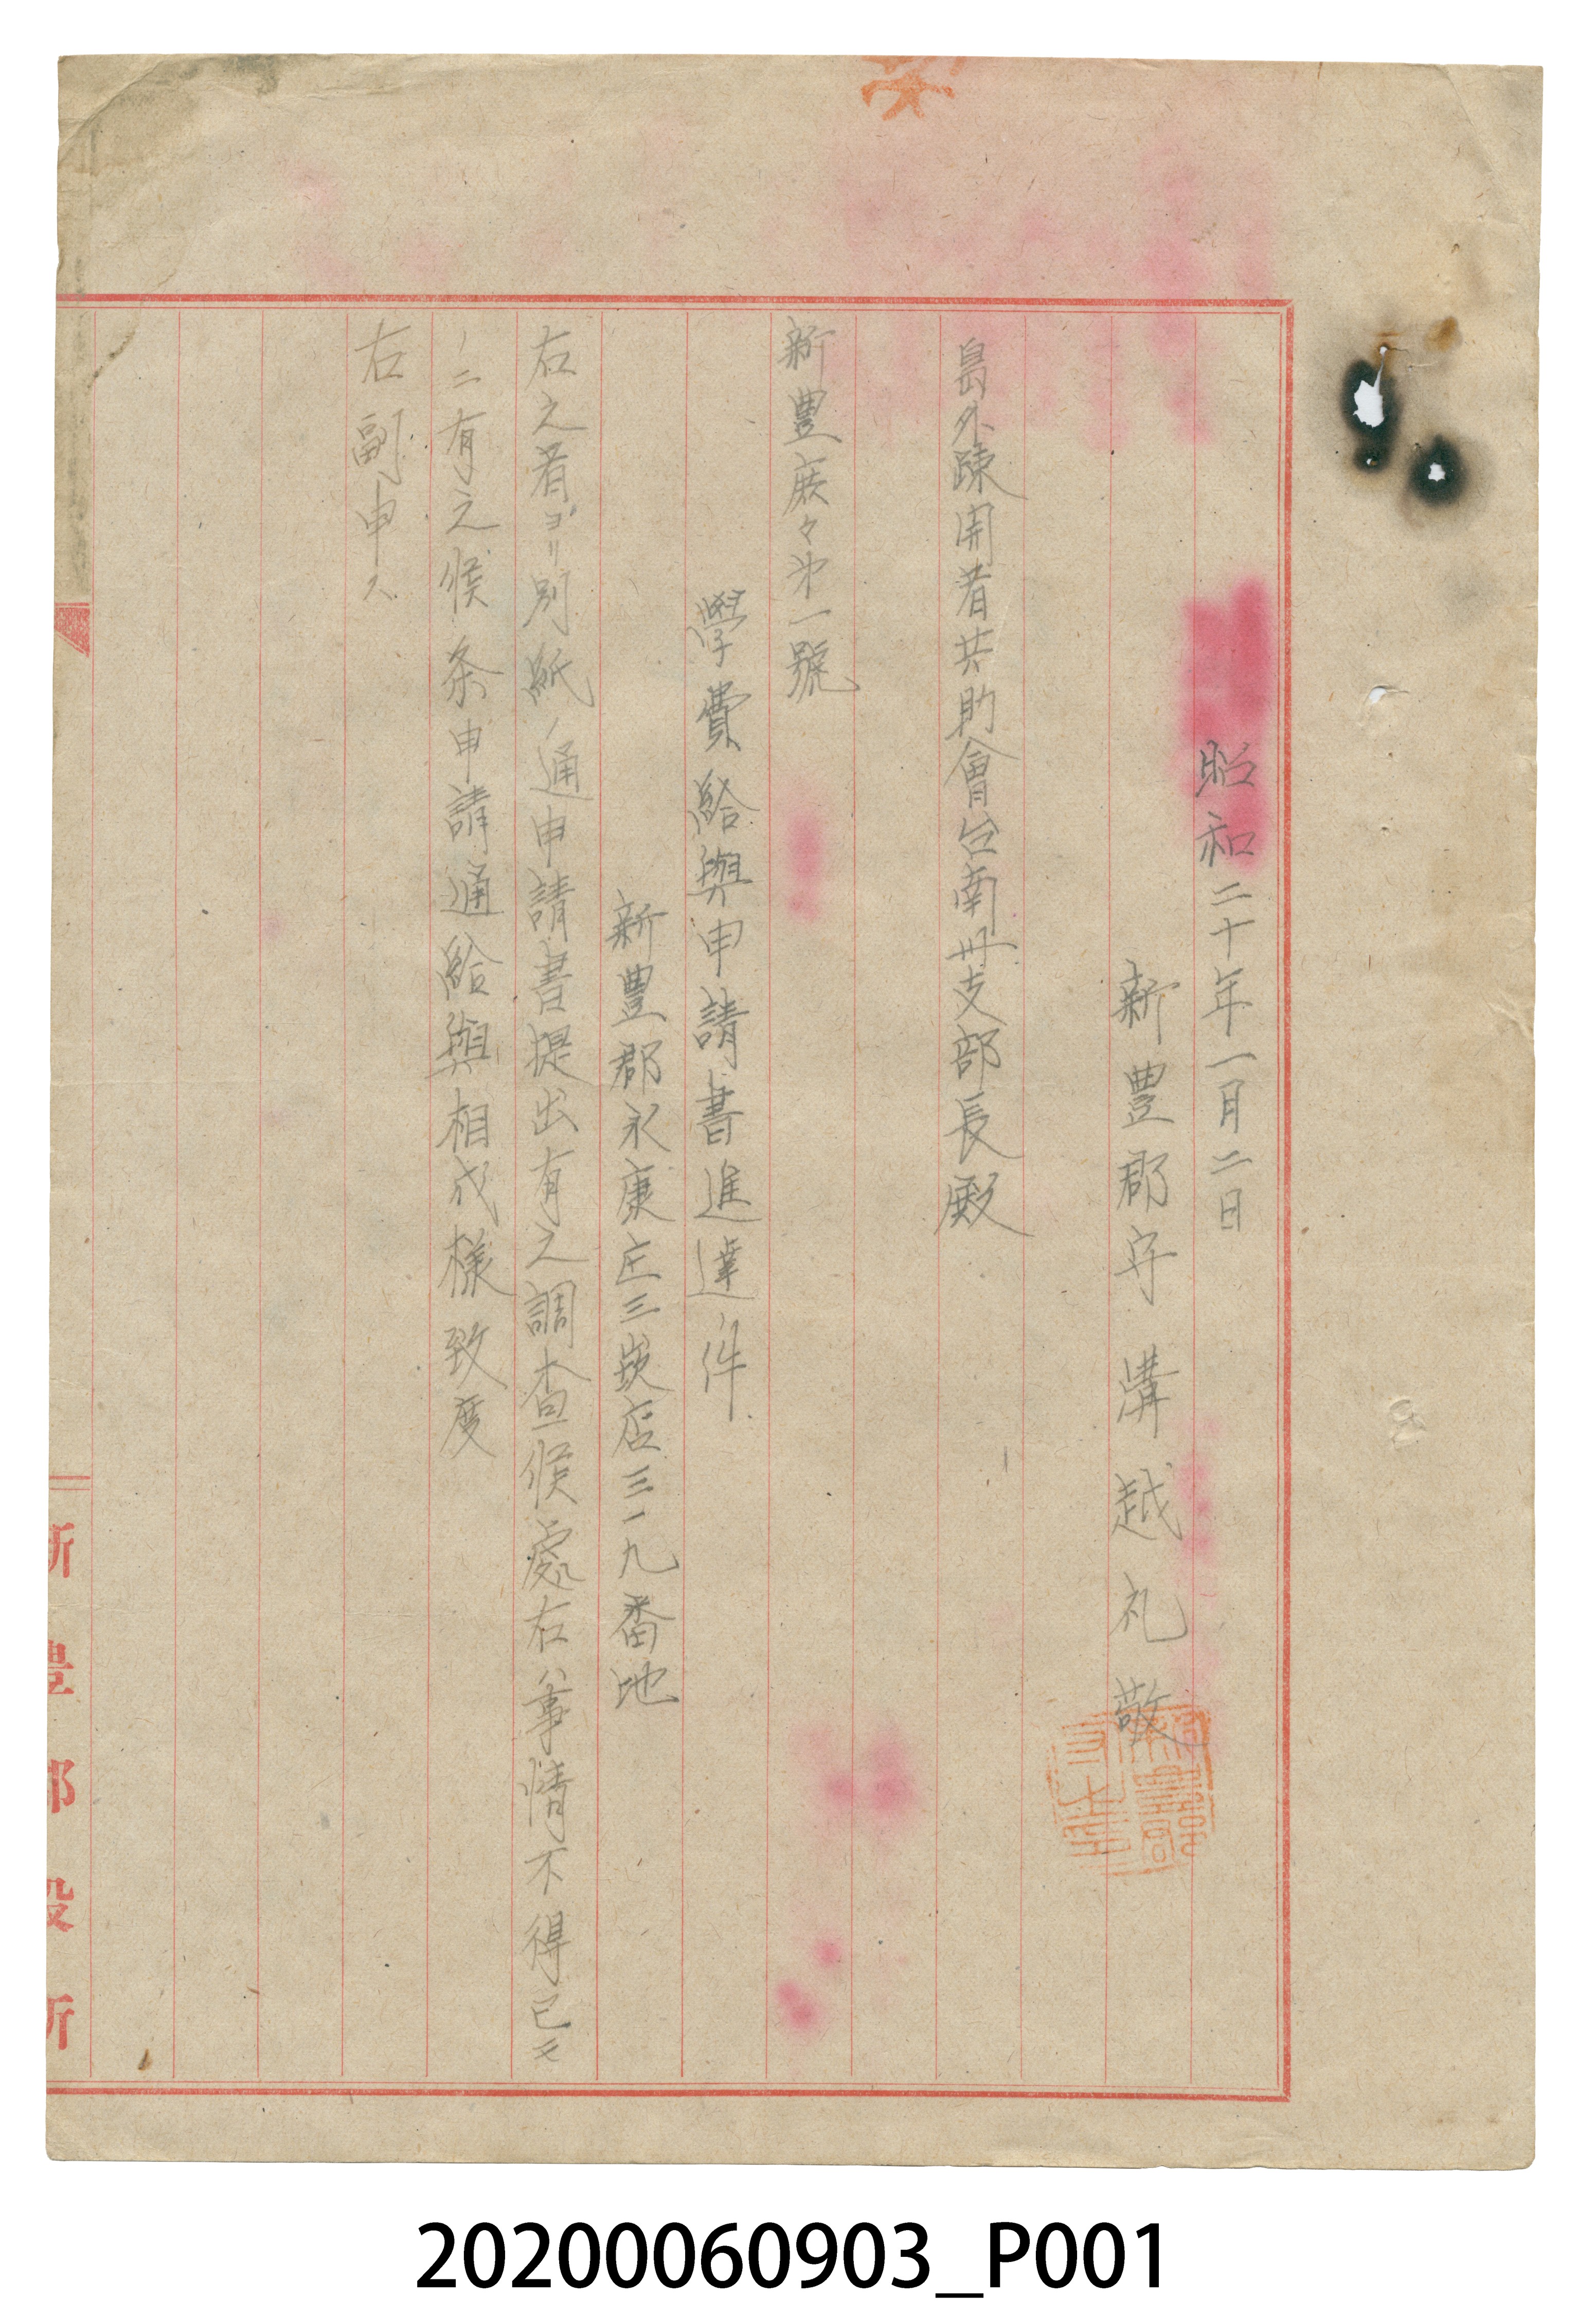 昭和二十年一月二日
新豊郡守 溝越礼敬
島外疎開者共助會台南州支部長殿
新豊庶々第一號
學費給與申請書進達ノ件
新豊郡永康庄三崁店三一九番地
右之者ヨリ別紙ノ通申請書提出有之調查候處右ハ事情不得已モ
ノニ有之候条申請通給與相成様致度
右副申ス
新豊郡役所
20200060903_P001